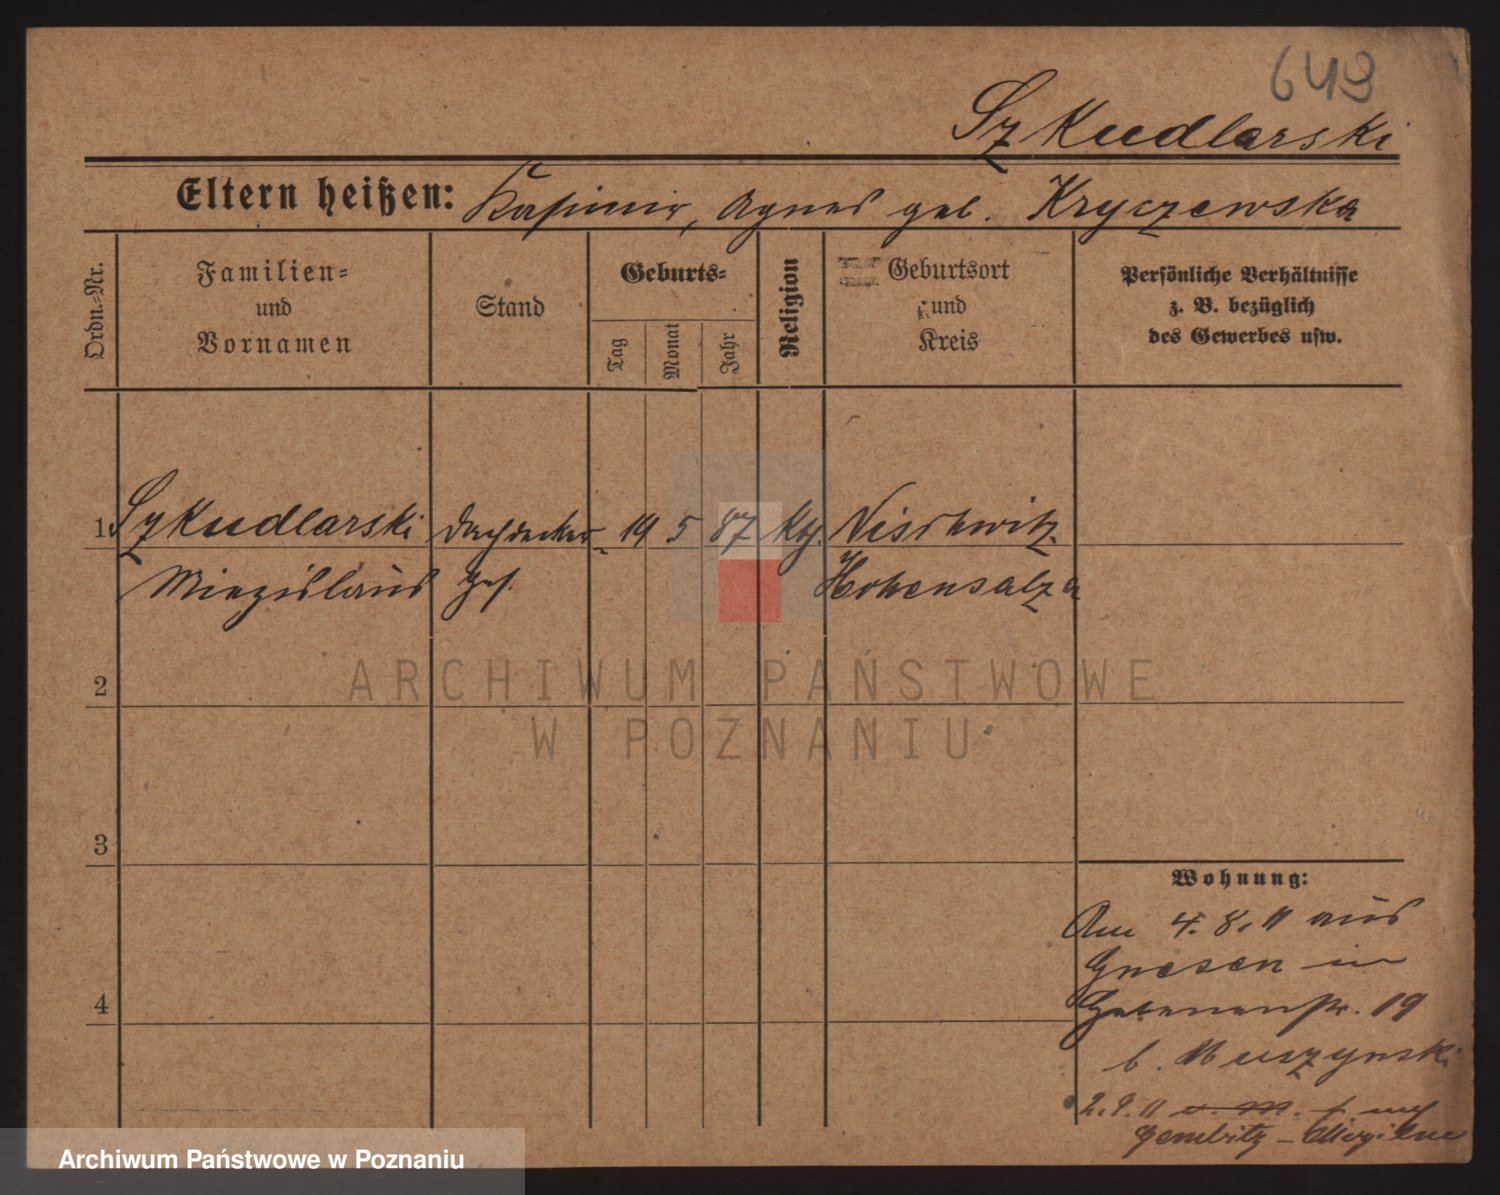 649
Szkudlarski
Eltern heißen: Kasimir, Agnes geb. Kryczewska
Ordn.-Nr.
Familien-
und
Vornamen
Stand
Geburts-
Tag
Monat
Jahr
Religion
Geburtsort
und
Kreis
Persönliche Verhältnisse
z. B. bezüglich
des Gewerbes usw.
1 Szkudlarski Dachdecker- 19 5 87 kth. Nischwitz
Miezislaus Ges. Hohensalza
2
ARCHIWUM PAŃSTWOWE
W POZNANIU
3
Wohnung:
Am 4. 8. 11 aus
Gnesen in
4
19
b. Muszynski
2. 9. 11 nach
Gembitz - Mogilno
Archiwum Państwowe w Poznaniu